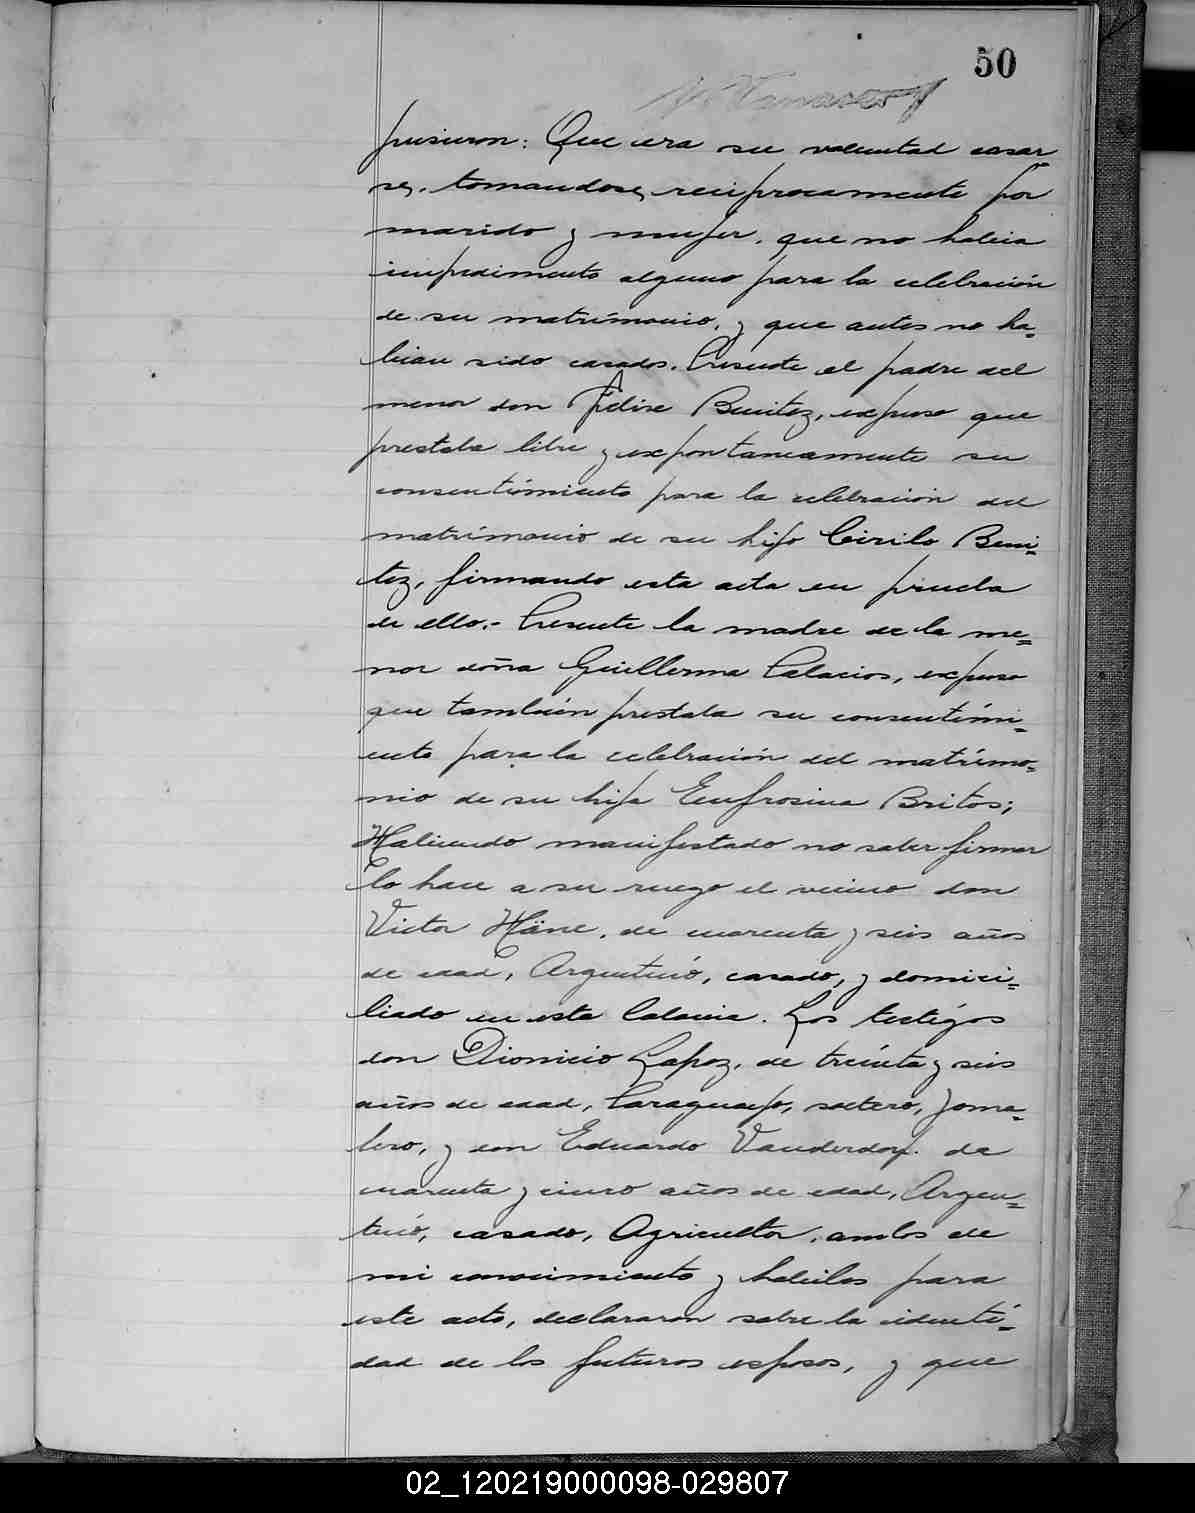 50
pusieron: Que era su voluntad casar-
se, tomandose, reciprocamente por
marido y mujer, que no habia
impedimento alguno para la celebración
de su matrimonio, y que antes no ha=
bian sido casados. Presente el padre del
menor don Benitez, expuso que
prestaba libre y expontaneamente su
consentimiento para la celebración del
matrimonio de su hijo Cirilo Beni=
tez, firmando esta acta en prueba
de ello.- Presente la madre de la me=
nor doña Guillerma Palacios, expuso
que también prestaba su consentimi=
ento para la celebración del matrimo=
nio de su hija Eufrosina Britos;
Habiendo manifestado no saber firmar
lo hace a su ruego el vecino don
Victor Häne, de cuarenta y seis años
de edad, Argentino, casado, y domici=
liado en esta Colonia. Los testigos
don Dionicio Lopez, de treinta y seis
años de edad, Paraguayo, soltero, jorna=
lero, y don Eduardo Vanderdorf. de
cuarenta y cinco años de edad, Argen=
tino, casado, Agricultor, ambos de
mi conocimiento y habiles para
este acto, declararon sobre la identi=
dad de los futuros esposos, y que
02_120219000098-029807